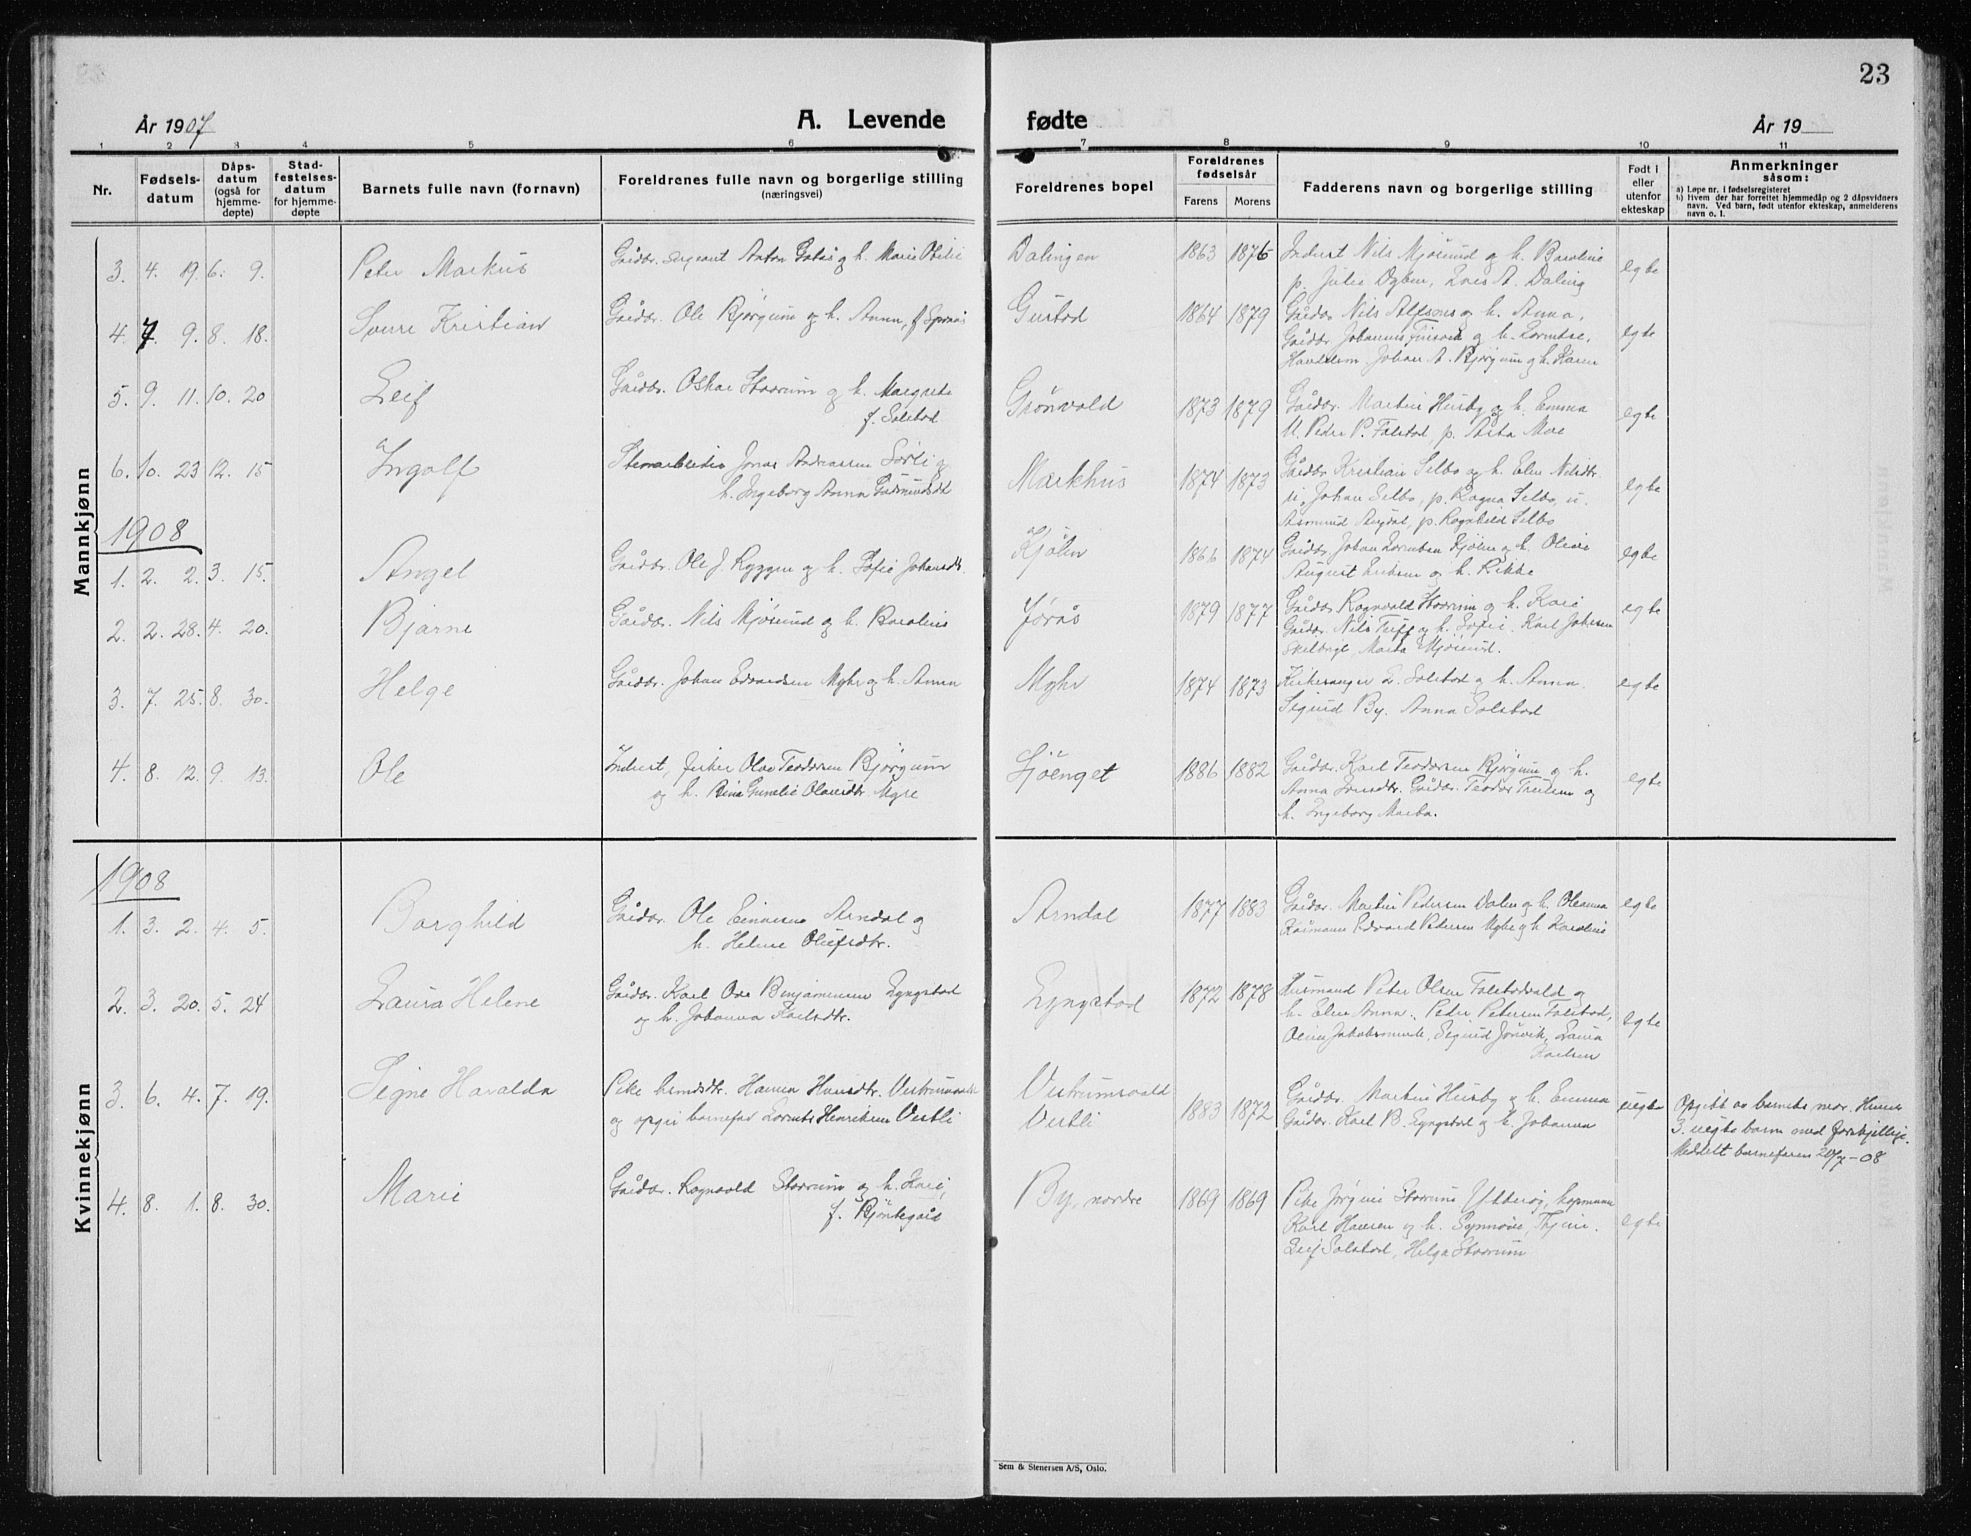 23
År 1907
A. Levende fødte
År 19
1 2 3 4 5 6 7 8 9 10 11
Nr.
Fødsels-
datum
Dåps-
datum
(også for
hjemme-
døpte)
Stad-
festelses-
datum
for hjemme-
døpte
Barnets fulle navn (fornavn)
Foreldrenes fulle navn og borgerlige stilling
(næringsvei)
Foreldrenes bopel
Foreldrenes
fødselsår
Farens Morens
Fadderens navn og borgerlige stilling
Født i
eller
utenfor
ekteskap
Anmerkninger
såsom:
a) Løpe nr. i fødselsregisteret
b) Hvem der har forrettet hjemmedåp og 2 dåpsvidners
navn. Ved barn, født utenfor ekteskap, anmelderens
navn o. l.
Mannkjønn
3. 4. 19 6. 9. Peter Markus
Gårdbr. sergeant Anton og h. Marie
Dalingen 1863 1876
Indrest Nils Mjøsund og h. Karoline
p. Julie Daling
egte
4. 7. 9. 8. 18. Sverre Kristian
Gårdbr. Ole Bjørgum og h. Anna, f.
Gustad 1864 1879
Gårdbr. Nils og h. Anna,
Gårdbr. Johannes og h.
Johan A. Bjørgum og h. Karen
egte
5. 9. 11. 10. 20 Leif
Gårdbr. Oskar Storrum og h. Margrete
f. Solstad
Grönvold 1873 1879
Gårdbr. Martin Husby og h. Emma
U. Peder P. Falstad, p. Åsta Moe
egte
6. 10. 23 12. 15 Ingolf
Stenarbeider Jonas Andreassen og
h. Ingeborg Anna
Markhus 1874 1873
Gårdbr. Kristian Selbo og h. Elen
u. Johan Selbo, p. Ragna Selbo, u.
p. Ragnhild Selbo
egte
1908
1. 2. 2. 3. 15. Angel
Gårdbr. Ole J. Ryggen og h. Sofie Johansdtr.
Kjølen 1866 1874
Gårdbr. Johan Kjølen og h.
August Eriksen og h. Rikke
egte
2. 2. 28. 4. 20. Bjarne
Gårdbr. Nils Mjøsund og h. Karoline
Jørås 1879 1877
Gårdbr. Ragnvald Storrum og h. Kari
Gårdbr. Nils og h. Sofie. Karl Johnsen
Marta Mjøsund.
egte
3. 7. 25. 8. 30. Helge
Gårdbr. Johan Edvardsen Myhr og h. Anna
Myhr 1874 1873
Kirkesanger L. Solstad og h. Anna.
Sigurd By. Anna Solstad
egte
4. 8. 12. 9. 13. Ole
Indrest, fisker Olav Teodorsen Bjørgum
og h. Olausdtr. Myre
Sjöenget 1886 1882
Gårdbr. Karl Teodorsen Bjørgum og h.
Anna Gårdbr. Teodor og
h. Ingeborg Marta.
egte
Kvinnekjønn
1908
1. 3. 2. 4. 5. Borghild
Gårdbr. Ole Einarsen Arndal og
h. Helene Olufsdtr.
Arndal 1877 1883
Gårdbr. Martin Pedersen Dalen og h. Oleanna
Edvard Pedersen Myhr og h. Karoline
egte
2. 3. 20. 5. 24 Laura Helene
Gårdbr. Karl Ove Benjaminsen Lyngstad
og h. Johanna Karlsdtr.
Lyngstad 1872 1878
Husmand Peter Olsen Falstadvald og
h. Elen Anna. Peder Petersen Falstad,
Sigurd Laura
Karlsen
egte
3. 6. 4. 7. 19. Signe Haralda
Pike Hanna Hansdtr. Vestrumsvald
og opgi barnefar Henriksen Vestli
Vestrumsvald
Vestli
1883 1872
Gårdbr. Martin Husby og h. Emma
Gårdbr. Karl B. Lyngstad og h. Johanna
uegte
Opgitt av barnets mor. Hennes
3. uegte barn med forskjellige.
Meddelt barnefaren 20/7-08
4. 8. 1. 8. 30. Marie
Gårdbr. Ragnvald Storrum og h. Kari,
f.
By, nordre 1869 1869
Pike Jørgine Storrum Ytterøy, kapmann
Karl Hansen og h. Synnøve,
Leif Solstad, Helga Storrum
egte
Sem & Stenersen A/S, Oslo.